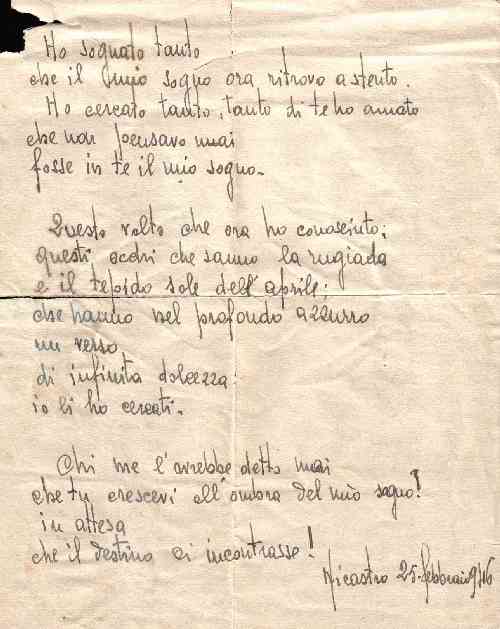 Ho sognato tanto
che il mio sogno ora ritrovo a stento.
Ho cercato tanto, tanto di te ho amato
che non pensavo mai
fosse in te il mio sogno.
Questo volto che ora ho conosciuto;
questi occhi che sanno la rugiada
e il tepido sole dell'aprile;
che hanno nel profondo azzurro
un verso
di infinita dolcezza:
io li ho cercati.
Chi me l'avrebbe detto mai
che tu crescevi all'ombra del mio sogno!
in attesa
che il destino ci incontrasse!
Nicastro 25-febbraio 946